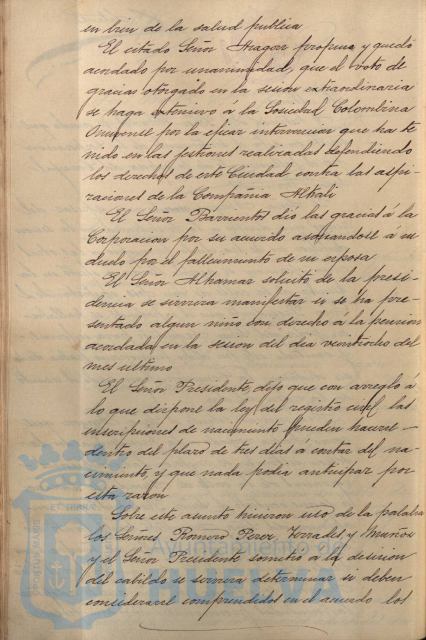 en bien de la salud publica
El citado Señor Aragon propuso y quedó
acordado por unanimidad, que el voto de
gracias otorgado en la sesion extraordinaria
se haga extensivo á la Sociedad Colombina
Onuvense por la eficaz intervencion que ha te
nido en las gestiones realizadas defendiendo
los derechos de esta Ciudad contra las aspi-
raciones de la Compañia Alkali
El Señor Barrientos dió las gracias á la
Corporacion por su acuerdo asociandose á su
duelo por el fallecimiento de su esposa
El Señor Alkamar solicitó de la presi-
dencia se sirviera manifestar si se ha pre-
sentado algun niño con derecho á la pension
acordada en la sesion del dia veintiocho del
mes ultimo
El Señor Presidente, dijo que con arreglo á
lo que dispone la ley del registro civil las
inscripciones de nacimiento pueden hacerse
dentro del plazo de tres dias á contar del na-
cimiento, y que nada podia anticipar por
esta razon
Sobre este asunto hicieron uso de la palabra
los Señores Romero Perez, Terrades, y Muñoz
y el Señor Presidente sometió á la decision
del cabildo se sirviera determinar si deben
considerarse comprendidos en el acuerdo los
Ayuntamiento de
HUELVA